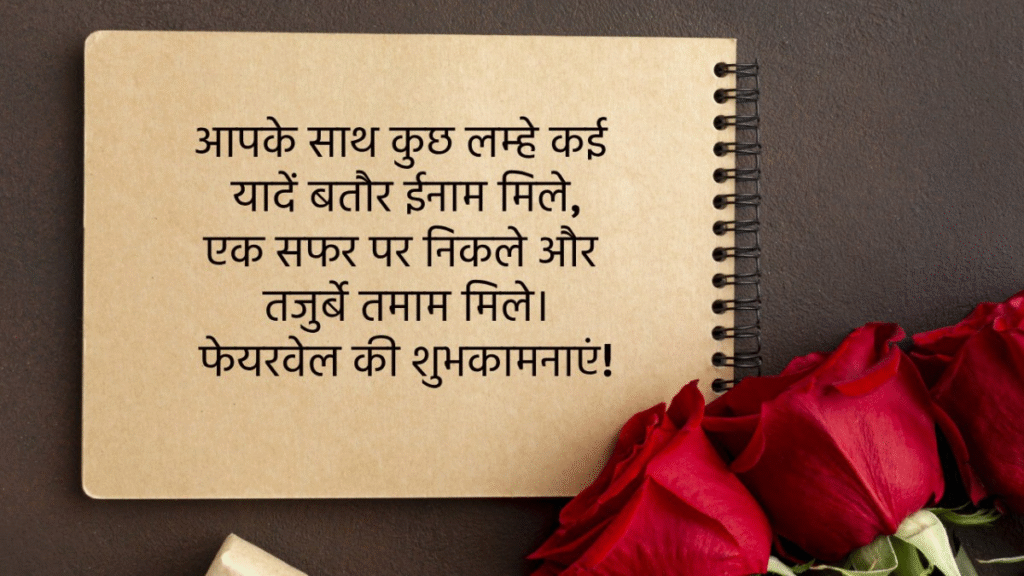 आपके साथ कुछ लम्हे कई
यादें बतौर ईनाम मिले,
एक सफर पर निकले और
तजुर्बे तमाम मिले।
फेयरवेल की शुभकामनाएं!